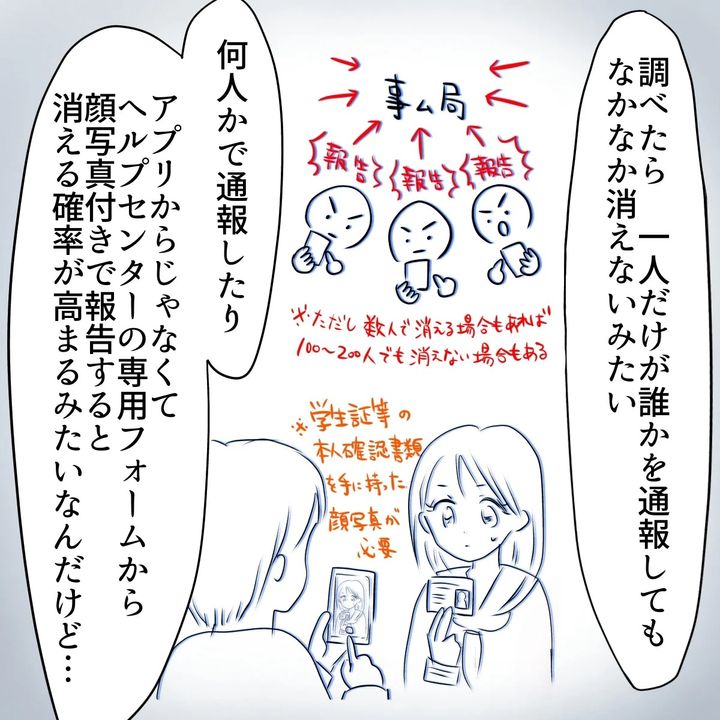 調べたら 一人だけが誰かを通報しても
なかなか消えないみたい
事ム局
報告
報告
報告
※ただし数人で消える場合もあれば
100〜200人でも消えない場合もある
何人かで通報したり
アプリからじゃなくて
ヘルプセンターの専用フォームから
顔写真付きで報告すると
消える確率が高まるみたいなんだけど…
※学生証等の
本人確認書類
を手に持った
顔写真が
必要